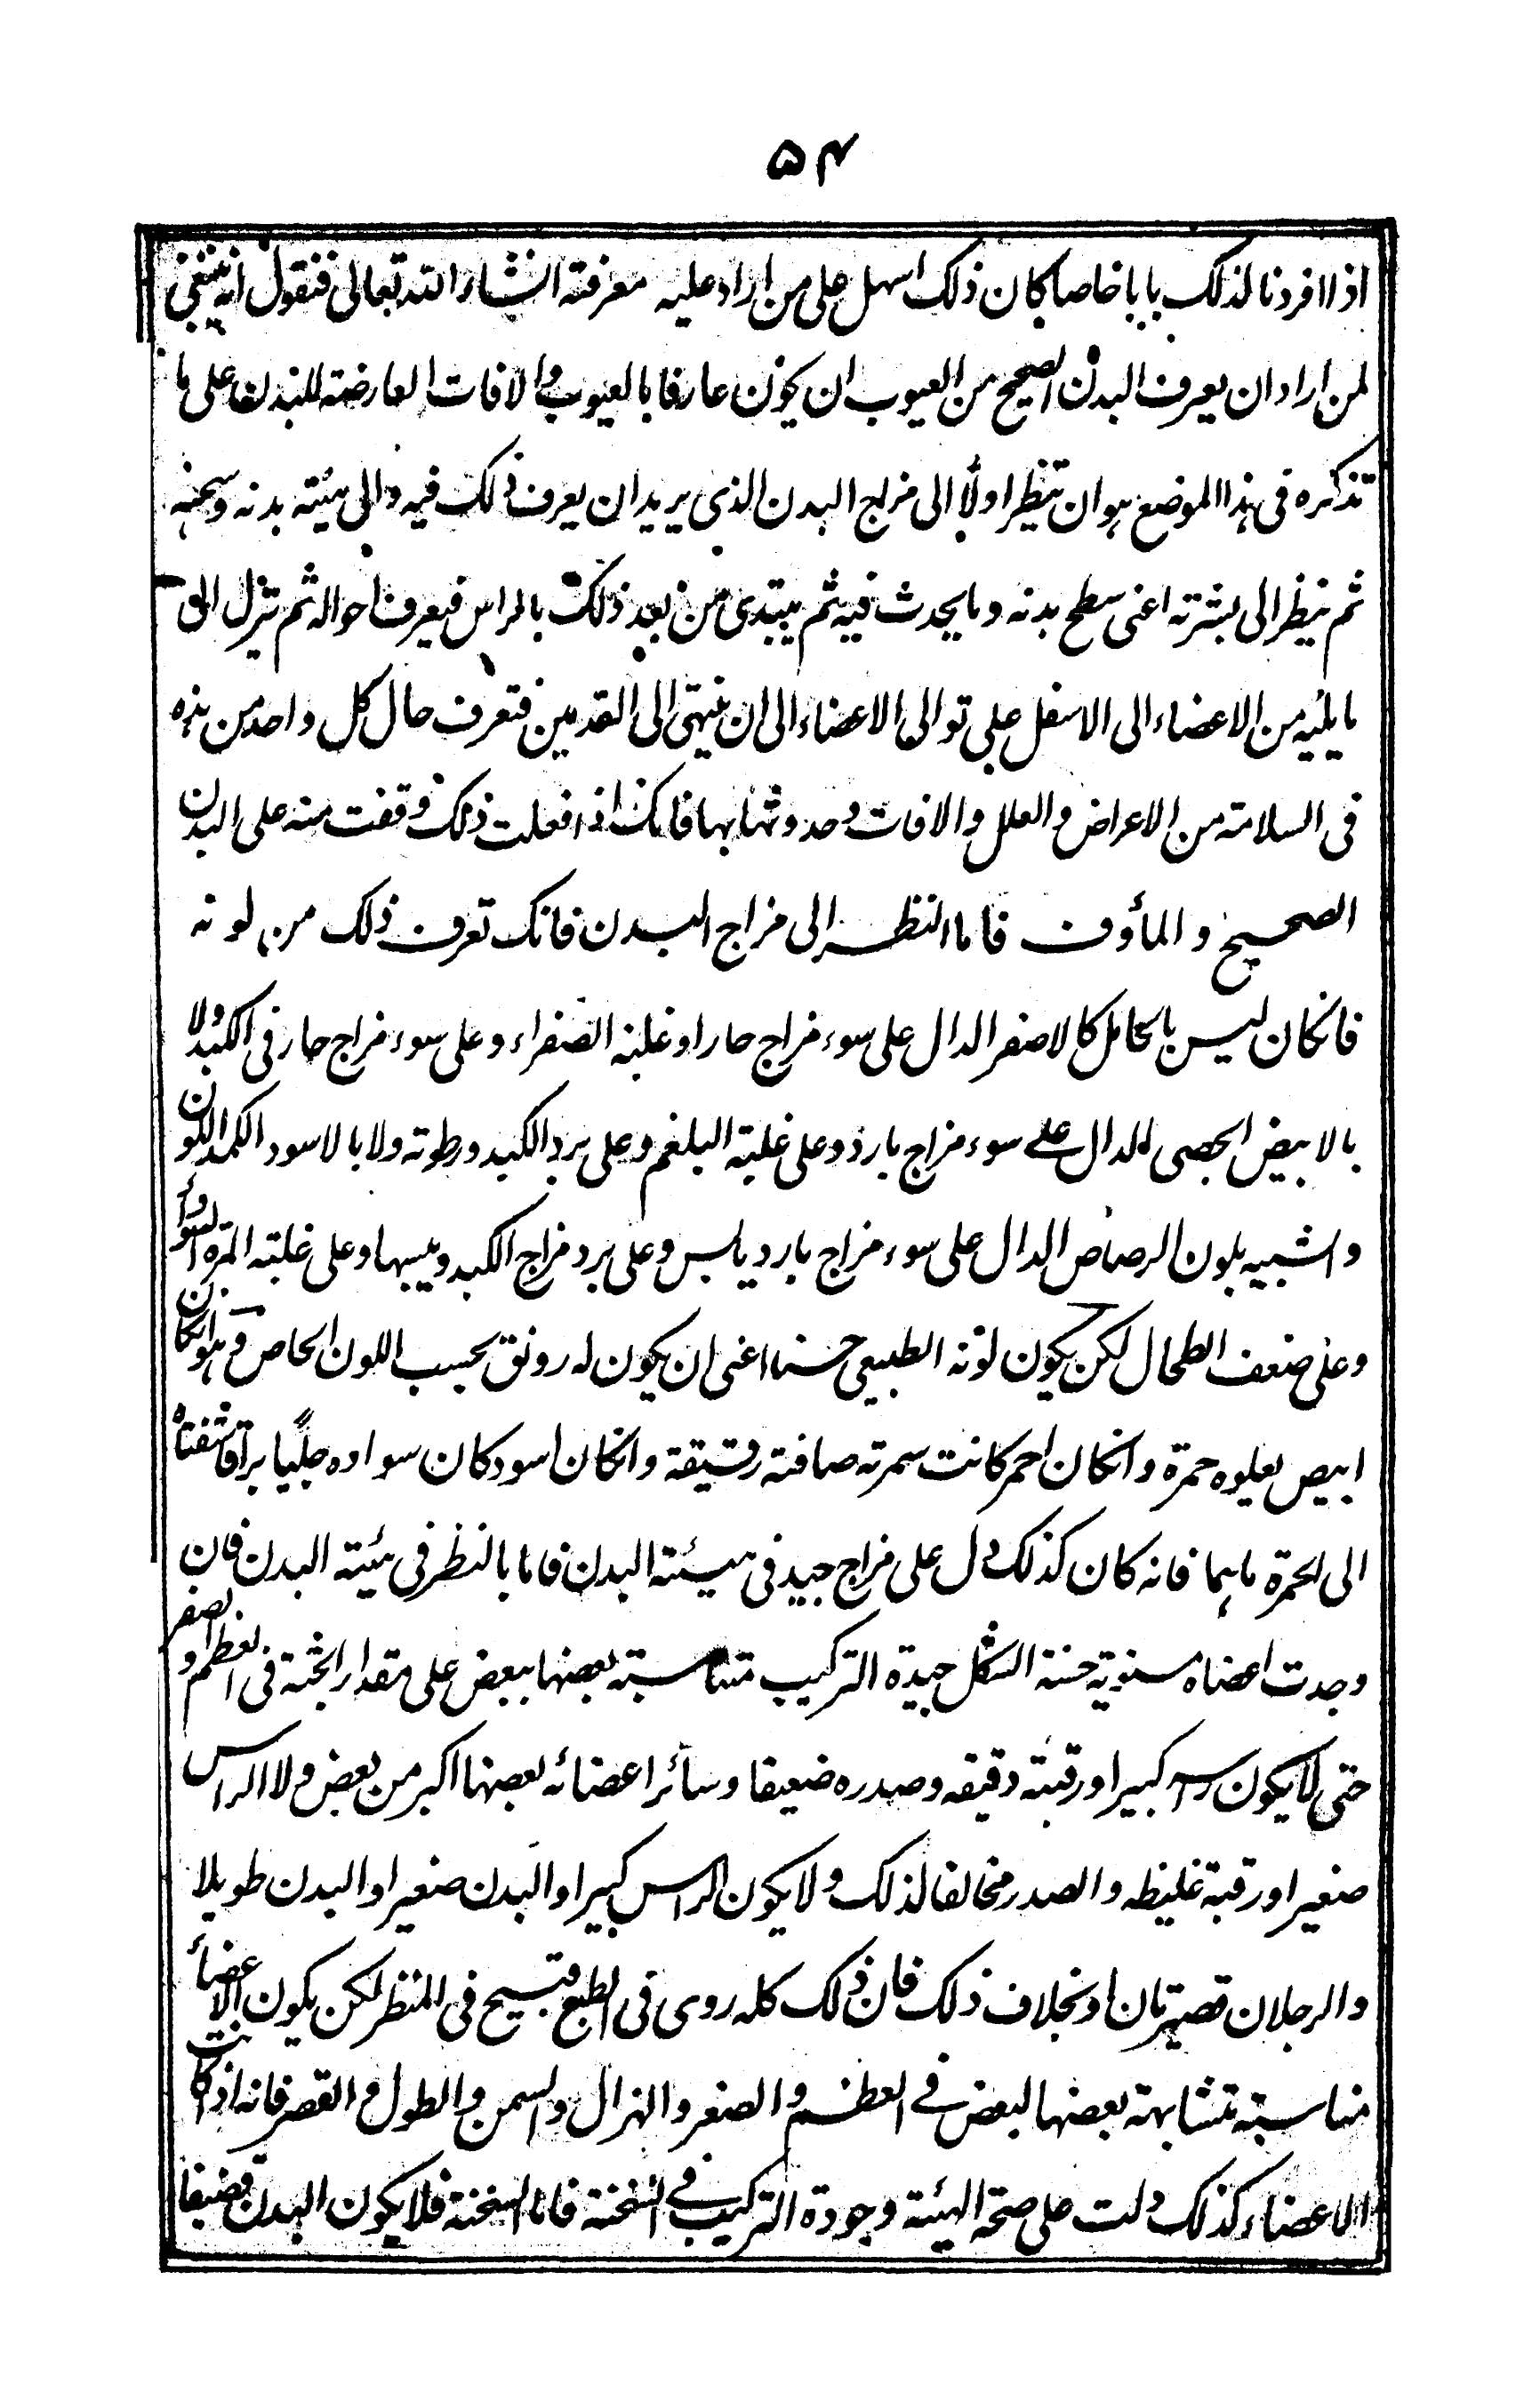 ۵۴
اذا افردنا لذلک بابا خاصا کان ذلک اسهل علی من اراد علیه معرفته انشاء الله تعالی فنقول انه ینبغی
لمن اراد ان یعرف البدن الصحیح من العیوب ان یکون عارفا بالعیوب و الافات العارضة للبدن علی ما
نذکره فی هذا الموضع هو ان تنظر اولًا الی مزاج البدن الذی یرید ان یعرف ذلک فیه والی هیئته بدنه وسحنه
ثم ینظر الی بشرته اعنی سطح بدنه وما یحدث فیه ثم یبتدی من بعد ذلک بالراس فیعرف احواله ثم ینزل الی
ما یلیه من الاعضاء الی الاسفل علی توالی الاعضاء الی ان ینتهی الی القدمین فتعرف حال کل واحد من هذه
فی السلامة من الاعراض و العلل والافات وحدوثها بها فانک اذا فعلت ذلک وقفت منه علی البدن
الصحیح و المأوف فاما النظر الی مزاج البدن فانک تعرف ذلک من لونه
فانکان لیس بالحامل کالاصفر الدال علی سوء مزاج حار او غلبة الصفراء وعلی سوء مزاج حار فی الکبد ولا
بالابیض الجصی الدال علی سوء مزاج بارد وعلی غلبة البلغم وعلی برد الکبد ورطوبته ولا بالاسود الکمد اللون
و اشبیه بلون الرصاص الدال علی سوء مزاج بارد یابس وعلی برد مزاج الکبد ویبسها وعلی غلبته المرة السودأ
وعلی ضعف الطحال لکن یکون لونه الطبیعی حسنا اعنی ان یکون له رونق بحسب اللون الخاص وهو انکان
ابیض یعلوه حمرة وانکان احمر کانت سمرته صافیة رقیقة وانکان اسود کان سواده جلیًا براقا شفتاه
الی الحمرة ماهما فانه کان کذلک دل علی مزاج جید فی هیئته البدن فاما بالنظر فی هیئة البدن فان
وجدت اعضاه مستویة حسنة الشکل جیدة الترکیب متناسبته بعضها ببعض علی مقدار الجثة فی العظم و الصغر
حتی لا یکون رسه کبیرا ورقبته دقیقه وصدره ضعیفا وسائر اعضائه بعضها اکبر من بعض ولا الراس
صغیرا ورقبة غلیظه والصدر مخالفا لذلک ولا یکون الراس کبیرا والبدن صغیرا والبدن طویلا
والرجلان قصیرتان او بخلاف ذلک فان ذلک کله روی فی الطبع قبیح فی المنظر لکن یکون الاعضأ
مناسبته متشابهته بعضها لبعض فی العظم و الصغر و الهزال والسمن والطول والقصر فانه اذا کانت
الاعضاء کذلک دلت علی صحة الهیئة وجودة الترکیب فی السخنة فاما السخنة فلا یکون البدن قضیفا